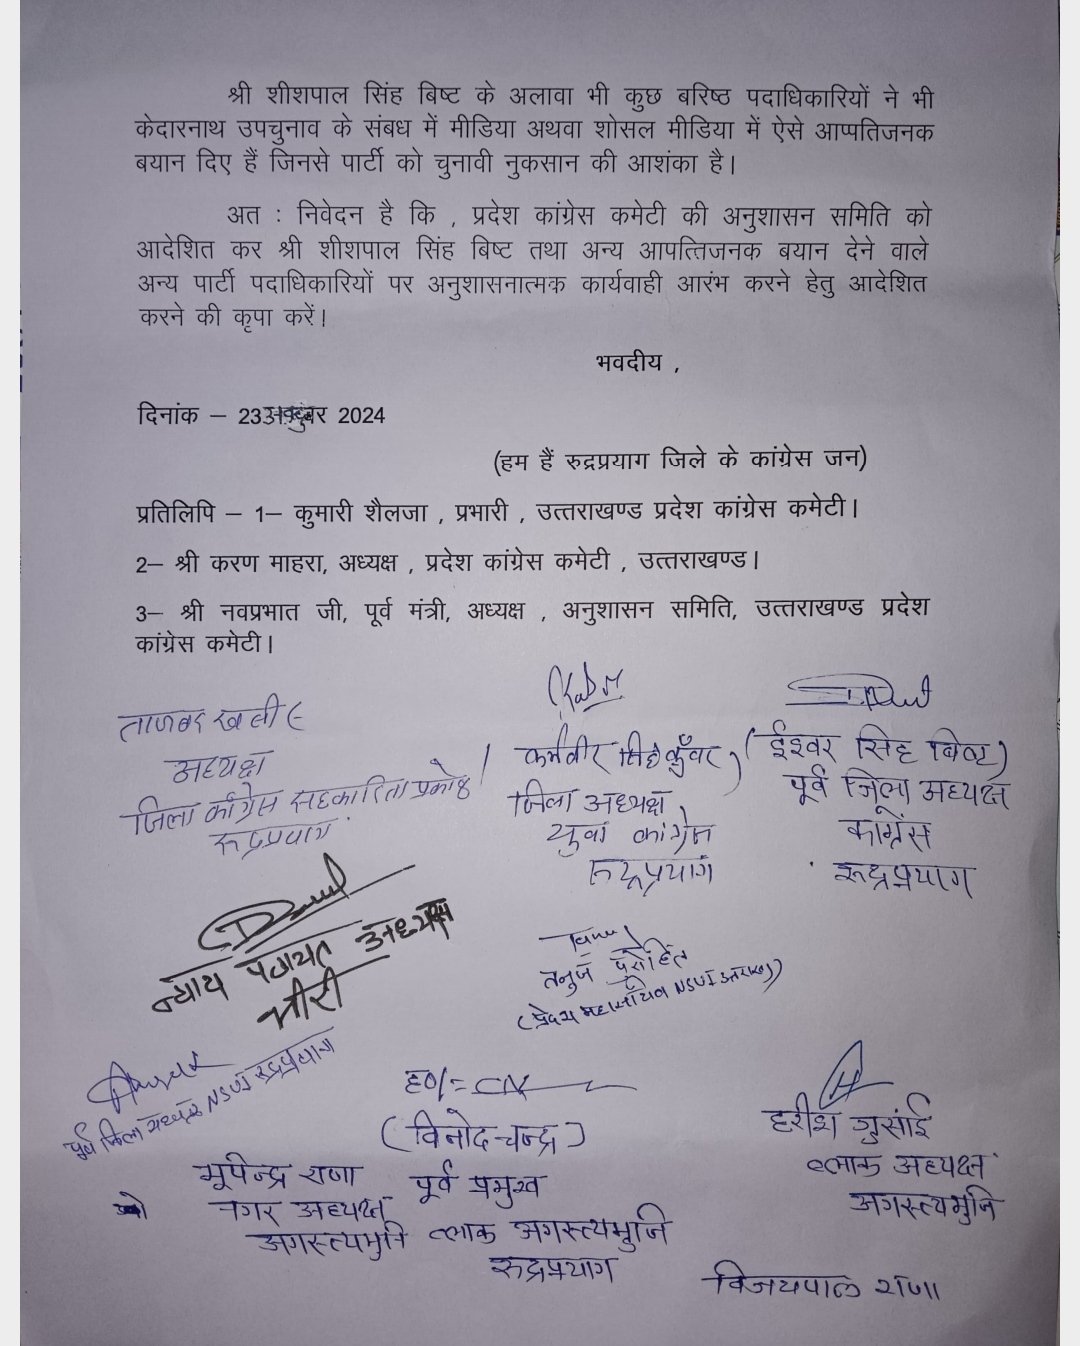 श्री शीशपाल सिंह बिष्ट के अलावा भी कुछ बरिष्ठ पदाधिकारियों ने भी
केदारनाथ उपचुनाव के संबध में मीडिया अथवा शोसल मीडिया में ऐसे आप्पतिजनक
बयान दिए हैं जिनसे पार्टी को चुनावी नुकसान की आशंका है।
अत : निवेदन है कि , प्रदेश कांग्रेस कमेटी की अनुशासन समिति को
आदेशित कर श्री शीशपाल सिंह बिष्ट तथा अन्य आपत्तिजनक बयान देने वाले
अन्य पार्टी पदाधिकारियों पर अनुशासनात्मक कार्यवाही आरंभ करने हेतु आदेशित
करने की कृपा करें।
भवदीय ,
दिनांक – 23 अक्टूबर 2024
(हम हैं रुद्रप्रयाग जिले के कांग्रेस जन)
प्रतिलिपि – 1– कुमारी शैलजा , प्रभारी , उत्तराखण्ड प्रदेश कांग्रेस कमेटी।
2– श्री करण माहरा, अध्यक्ष , प्रदेश कांग्रेस कमेटी , उत्तराखण्ड।
3– श्री नवप्रभात जी, पूर्व मंत्री, अध्यक्ष , अनुशासन समिति, उत्तराखण्ड प्रदेश
कांग्रेस कमेटी।
ताजबर खत्री
अध्यक्ष
जिला कांग्रेस सहकारिता प्रकोष्ठ
रूद्रप्रयाग
कर्मवीर सिंह कुँवर
जिला अध्यक्ष
युवा कांग्रेस
रूद्रप्रयाग
(ईश्वर सिंह बिष्ट)
पूर्व जिला अध्यक्ष
कांग्रेस
रूद्रप्रयाग
न्याय पंचायत अध्यक्ष
तनुज पुरोहित
(प्रदेश महासचिव NSUI उत्तराखण्ड)
पूर्व जिला अध्यक्ष NSUI रूद्रप्रयाग
ह0/=
(विनोद चन्द्र)
पूर्व प्रमुख
ब्लाक अगस्त्यमुनि
रूद्रप्रयाग
हरीश गुसांई
ब्लाक अध्यक्ष
अगस्त्यमुनि
भूपेन्द्र राणा
नगर अध्यक्ष
अगस्त्यमुनि
विजयपाल राणा